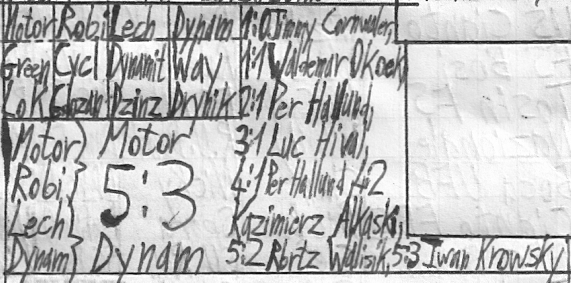 Motor Robi Lech Dynam 1:0 Jimmy Cornwaler,
Green Cycl Dynamit Way 1:1 Waldemar Okoek,
Lok Gorzan Dzinz Drynik 2:1 Per Hallund,
Motor} Motor 3:1 Luc Hival,
Robi,} 5:3 4:1 Per Hallund 4:2
Lech} Kazimierz Alkaski,
Dynam} Dynam 5:2 Rbrtz Walisik, 5:3 Iwan Krowsky